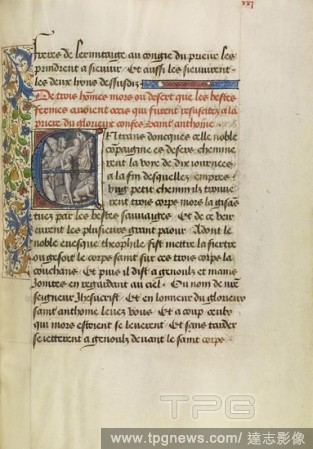 xxj
freres de lermitaige au congie du prieur les
prindrent a sieuuir Et aussi les sieuuirent
les deux lyons dessusdis
De trois hommes mors ou desert que les bestes
sieuues auoient occis qui furent resuscitez a la
priere du glorieux confes saint anthoine
Etrans doncques celle noble
compaignie es desers chemine
rent la voye de dix iournees
a la fin desquelles empres
vng petit chemin ilz trouue
rent trois corps mors la gisans
tuez par les bestes sauuaiges Et de ce veir
eurent les pluseurs grant paour Adont le
noble euesque theophile fist mettre la fiertre
ou gesoit le corps saint sur ces trois corps la
couchans Et puis il dist a genoulz et mains
iointes en regardant au ciel Ou nom de nre
seigneur Jhesucrist Et en lonneur du glorieux
saint anthoine leuez vous Et a coup ceulx
qui mors estoient se leuerent Et sans tarder
se ietterent a genoulz deuant le saint corps
TPG
www.tpgnews.com/ 達志影像